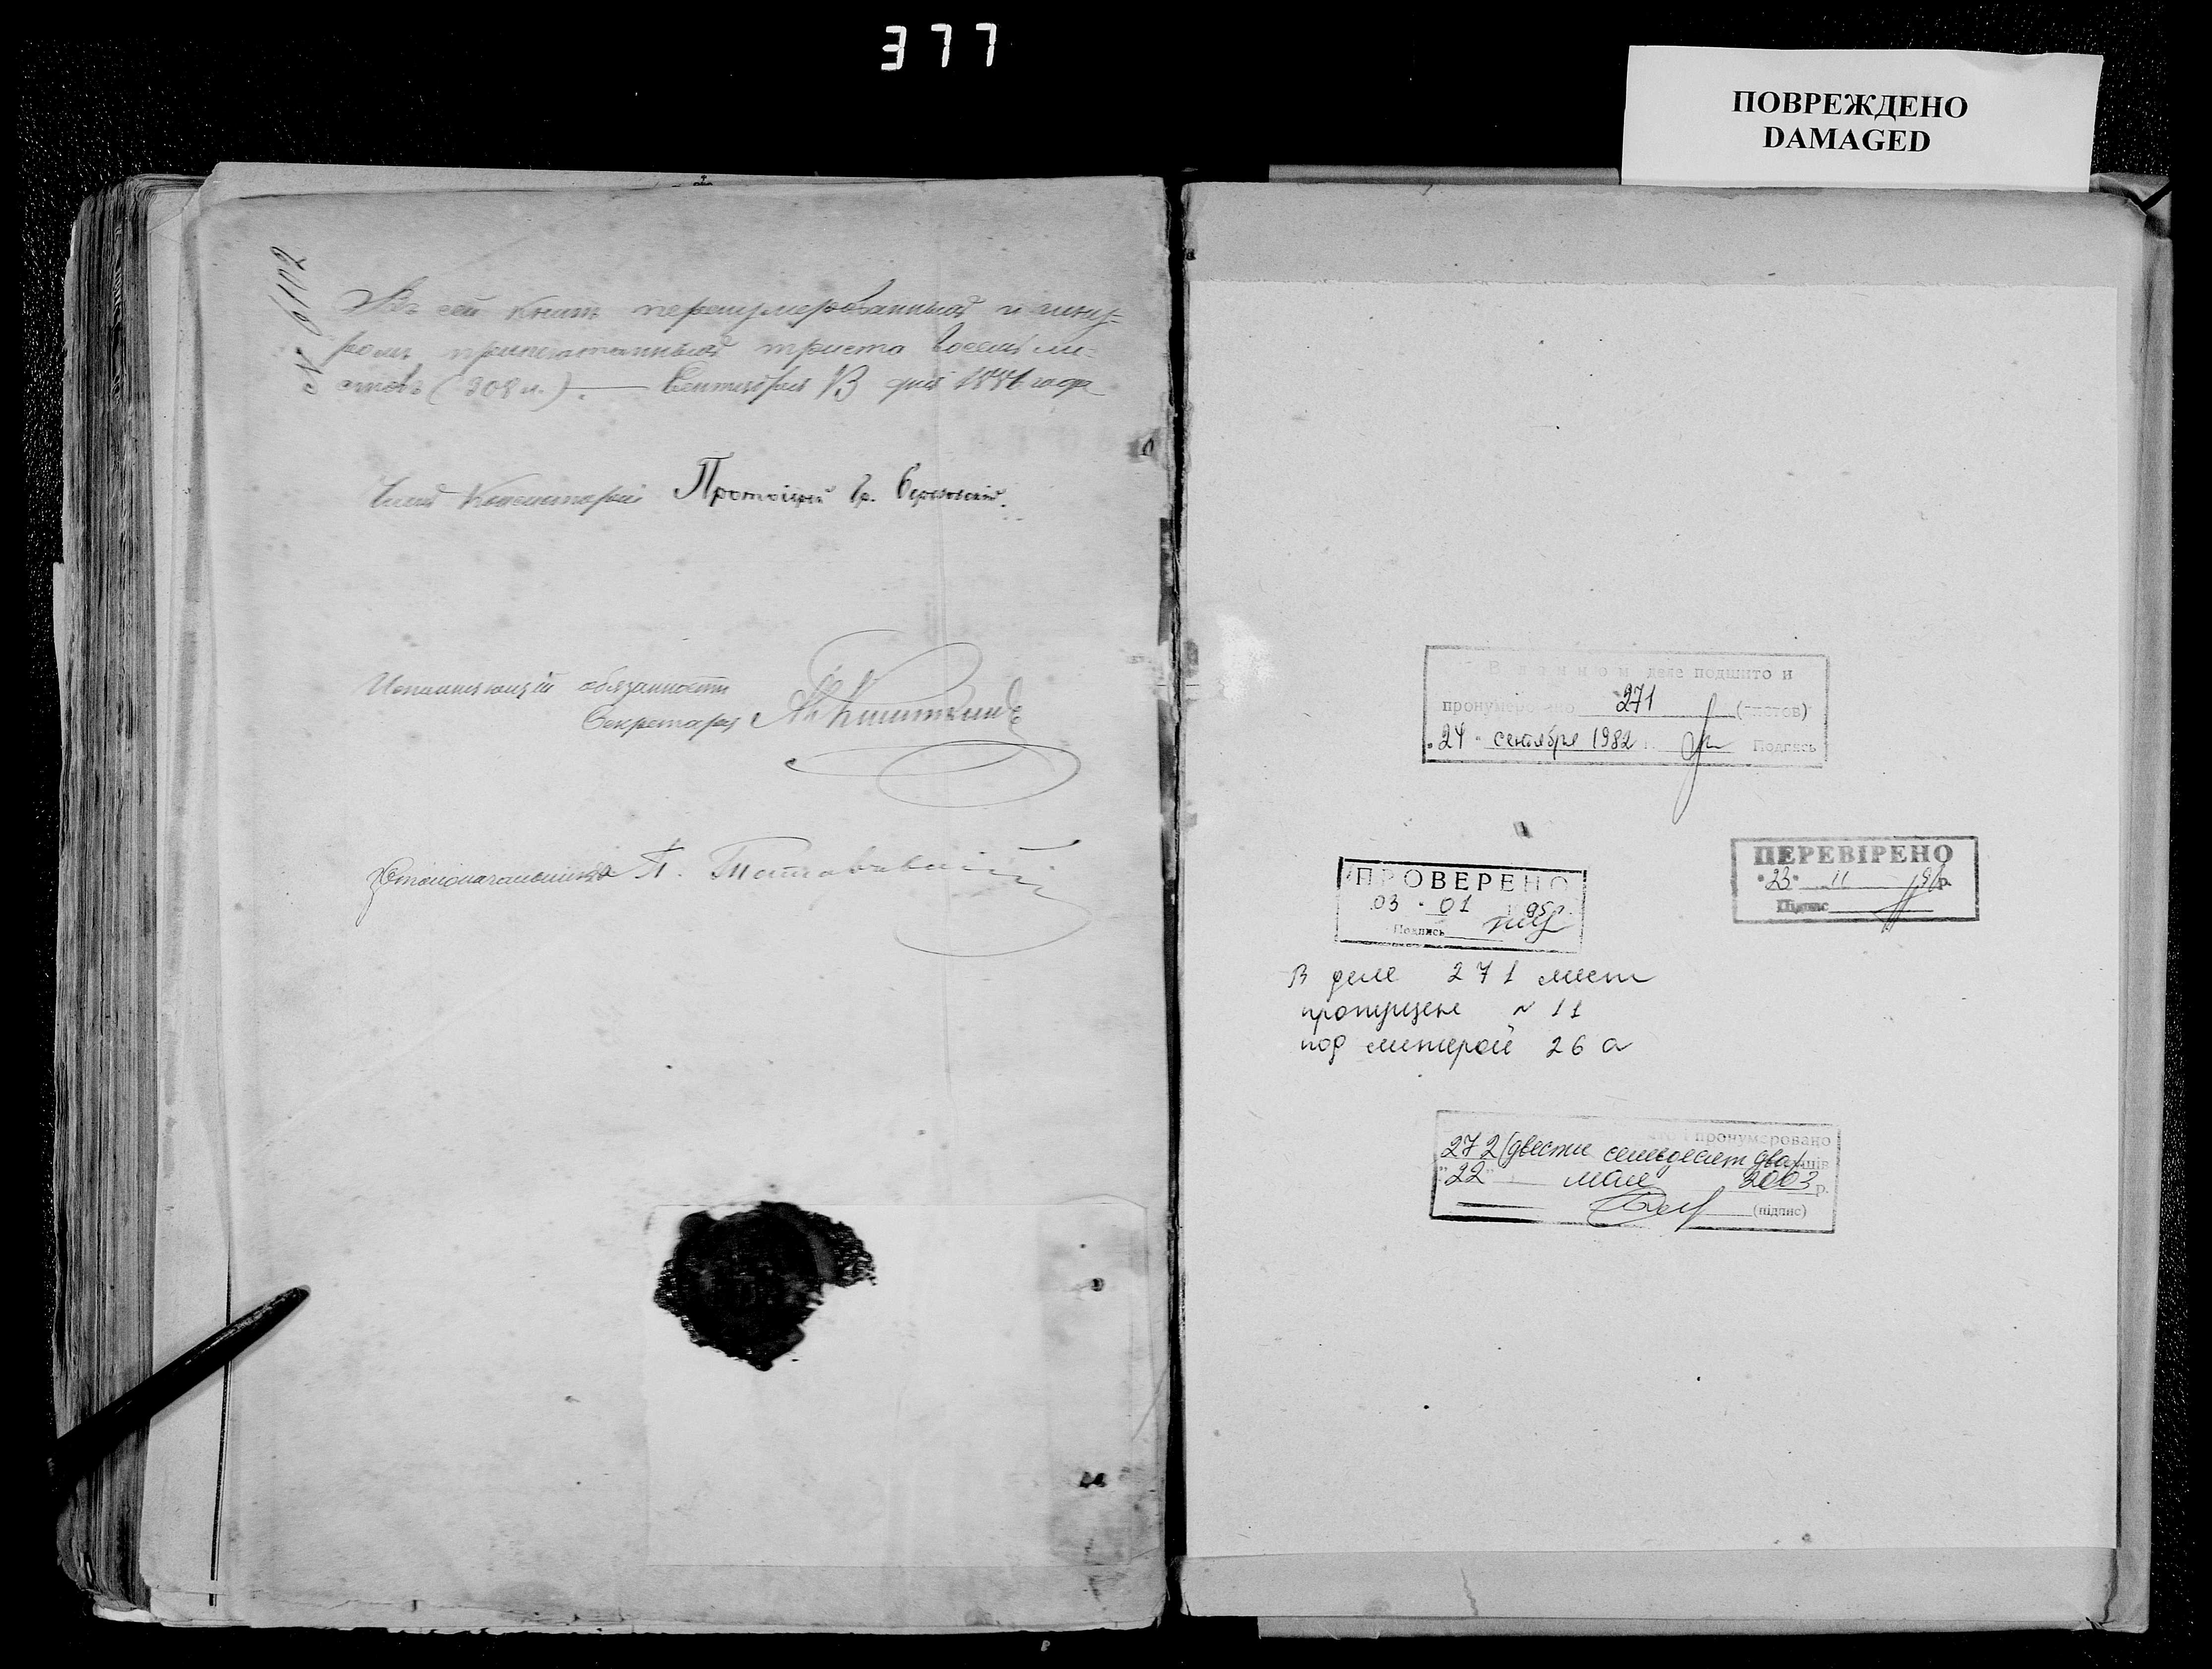 377
ПОВРЕЖДЕНО
DAMAGED
№ 6102
Въ сей книгѣ перенумерованныхъ и шну-
ромъ припечатанныхъ триста восемь ли-
стовъ (308 л.). — Сентября 13 дня 1881 года
Членъ Консисторіи Протоіерей Гр.
Исполняющій обязанности
Секретаря
Столоначальникъ П.
В данном деле подшито и
пронумеровано 271 (листов)
"24" сентября 1982 г. Подпись
ПРОВЕРЕНО
03 · 01 1995 г.
Подпись
ПЕРЕВІРЕНО
"23" 11 р.
Підпис
В деле 271 лист
пропущене № 11
под литерой 26 а
пронумеровано
272 (двести семьдесят два)
"22" мая 2003 р.
(підпис)